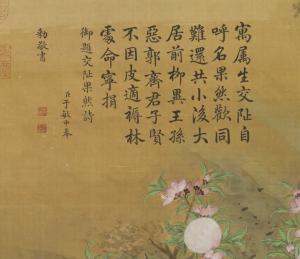 寓属生交阯自
呼名果然歡同
難還共小後大
居前柳異王孫
惡郭齋君子賢
不因皮適褥林
處命寧捐
御題交阯果然詩
臣于敏中奉
勅敬書